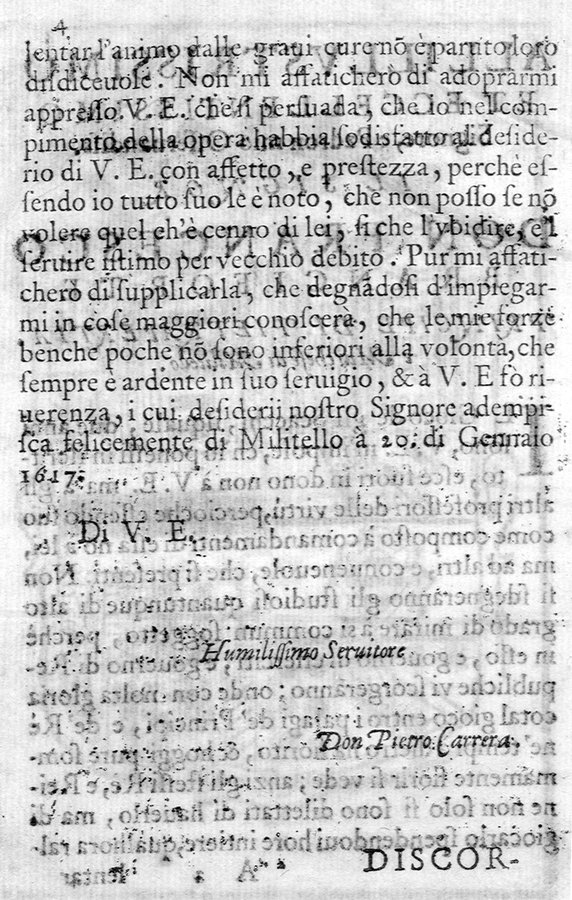 4
lentar l'animo dalle graui cure nõ è paruto loro
disdiceuole. Non mi affaticherò di adoprarmi
appresso V. E. che si persuada, che io nel com-
pimento della opera habbia sodisfatto al deside-
rio di V. E. con affetto, e prestezza, perchè es-
sendo io tutto suo le è noto, che non posso se nõ
volere quel ch'è cenno di lei, si che l'vbidire, e'l
seruire istimo per vecchio debito. Pur mi affati-
cherò di supplicarla, che degnãdosi d'impiegar-
mi in cose maggiori conoscerà, che le mie forze
benche poche nõ sono inferiori alla volontà, che
sempre è ardente in suo seruigio, & à V. E fò ri-
uerenza, i cui desiderii nostro Signore adempi-
sca felicemente di Militello à 20. di Gennaio
1617.
Di V. E.
Humilissimo Seruitore
Don Pietro Carrera.
DISCOR-